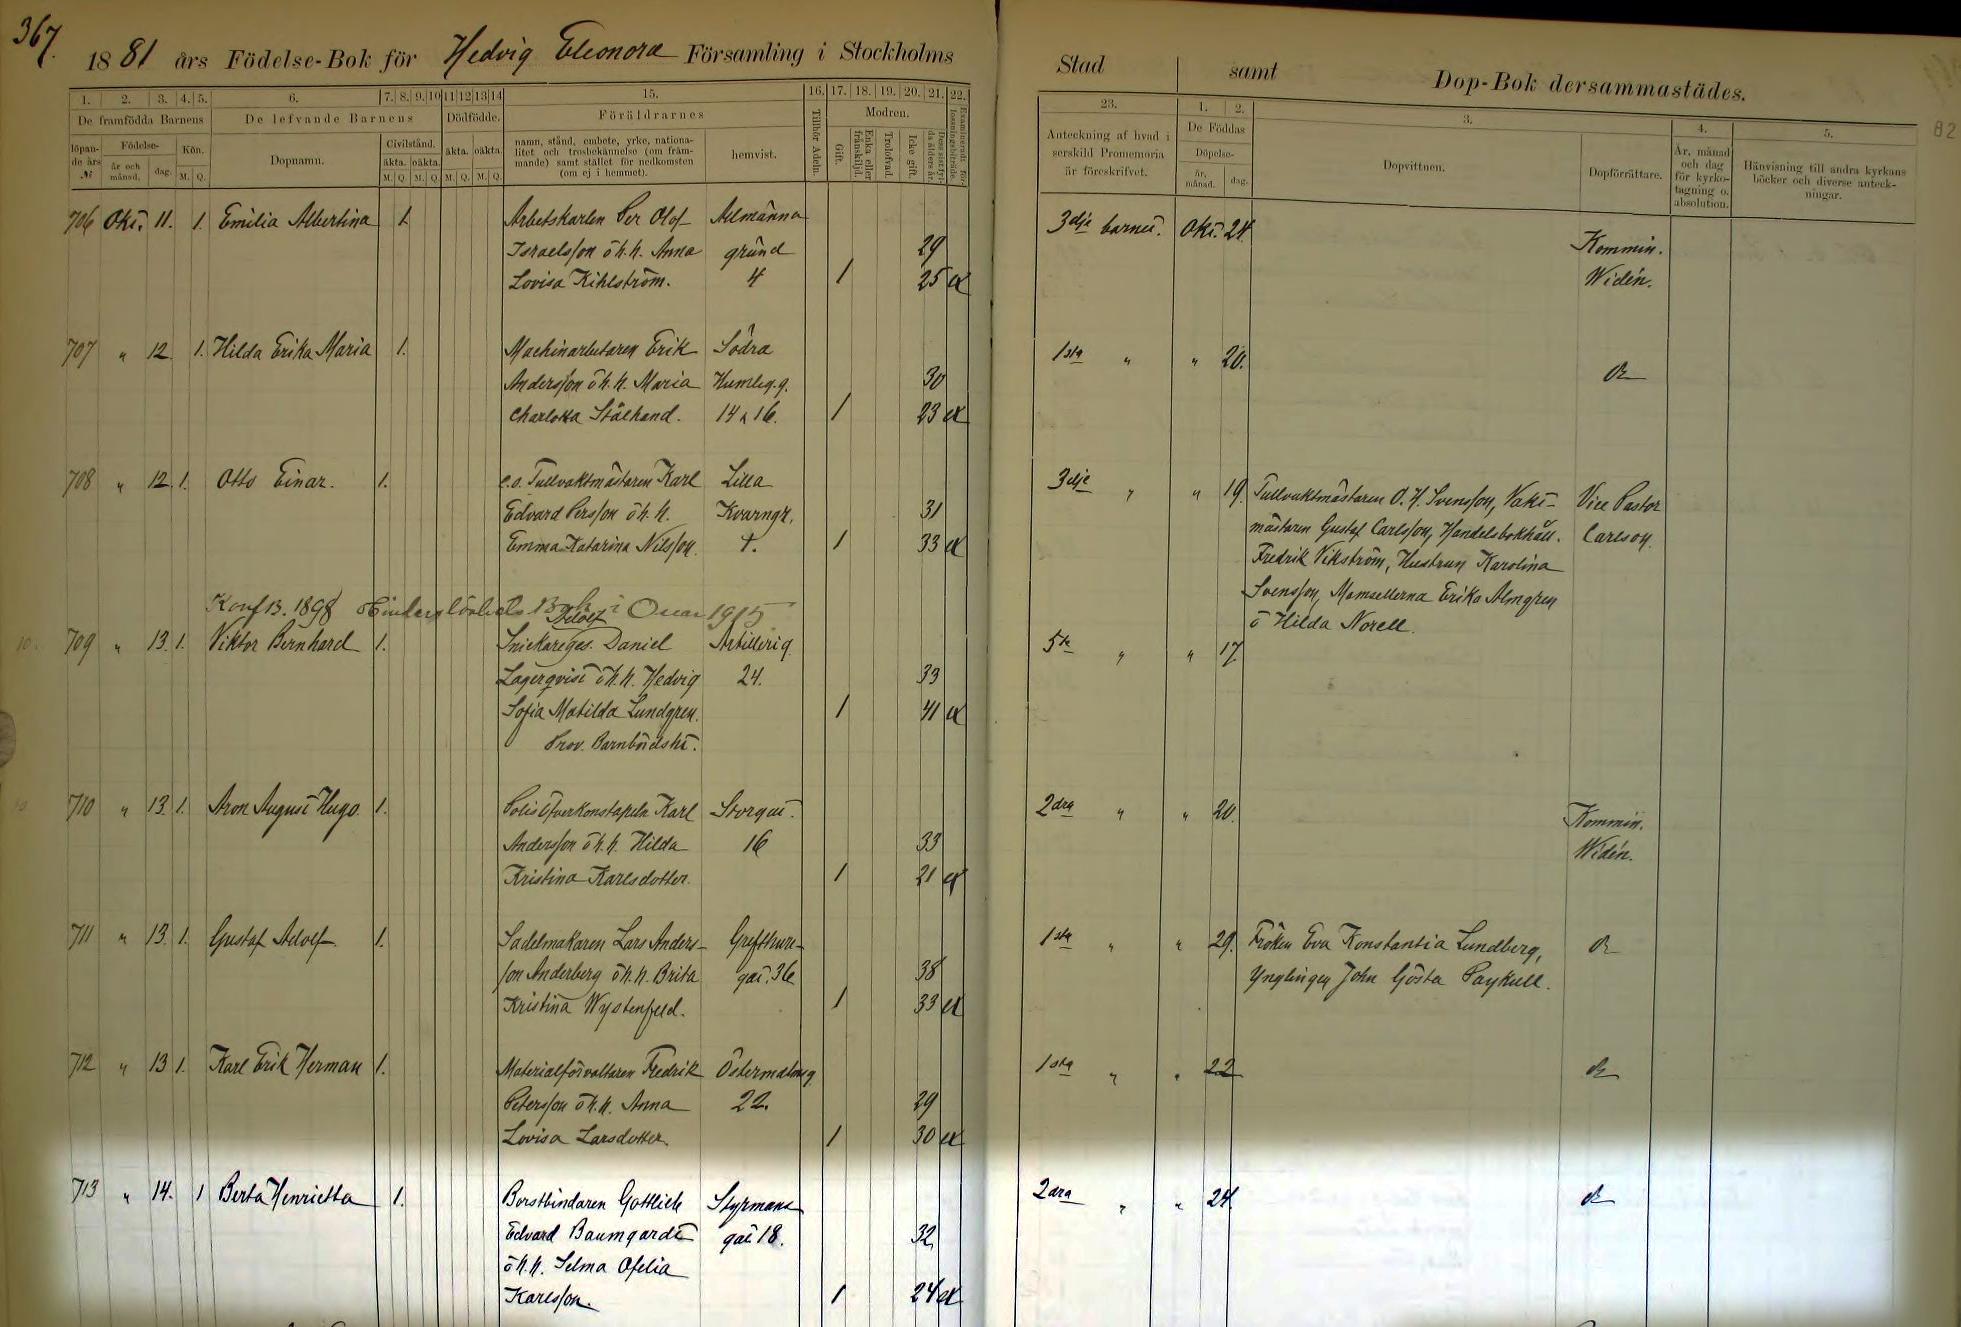 367.
1881 års Födelse-Bok för Hedvig Eleonora Församling i Stockholms Stad samt Dop-Bok dersammastädes.
82
1. 2. 3. 4. 5. 6. 7. 8. 9. 10 11 12 13 14 15. 16. 17. 18. 19. 20. 21. 22. 23. 1. 2. 3. 4. 5.
De framfödda Barnens
De lefvande Barnens
Dödfödde.
Föräldrarnes
Tillhör Adeln.
Modren.
löpande års №
Födelse-
år och månad.
dag.
Kön.
M. Q.
Dopnamn.
Civilstånd.
äkta. oäkta.
M. Q. M. Q.
äkta. oäkta.
M. Q. M. Q.
namn, stånd, embete, yrke, nationa-
litet och trosbekännelse (om främ-
mande) samt stället för nedkomsten
(om ej i hemmet).
hemvist.
Gift.
Enka eller frånskiljd.
Trolofvad.
Icke gift.
Anteckning af hvad i
serskild Promemoria
är föreskrifvet.
De Föddas
Döpelse-
år, månad.
dag.
Dopvittnen.
Dopförrättare.
År, månad
och dag
för kyrko-
tagning o.
absolution.
Hänvisning till andra kyrkans
böcker och diverse anteck-
ningar.
706 Okt. 11. 1. Emilia Albertina 1. Arbetskarlen Per Olof Allmänna 3dje barnet. Okt. 24.
Israelsson o h. h. Anna gränd 29 Kommin.
Lovisa Kihlström. 4 1 25 ex Widén.
707 " 12. 1. Hilda Erika Maria 1. Machinarbetaren Erik Södra 1sta " " 20.
Andersson o h. h. Maria Humleg.g. 30 do
Charlotta Stålhand. 14 & 16. 1 23 ex
708 " 12. 1. Otto Einar. 1. e.o. Tullvaktmästaren Karl Lilla 3dje " " 19. Tullvaktmästaren O. H. Svensson, Vakt- Vice Pastor
Edvard Persson o h. h. Kvarngr. 31 mästaren Gustaf Carlsson, Handelsbokhåll. Carlson.
Emma Katarina Nilsson. 1 33 ex Fredrik Vikström, Hustrun Karolina
Svensson, Mamsellerna Erika Almgren
o Hilda Norell.
Konf.B. 1898 Hinderslöshets Bok i Ouar 1915
Adolf
709 " 13. 1. Viktor Bernhard 1. Snickareges. Daniel Artillerig. 5te " " 17.
Lagerqvist o h. h. Hedvig 24. 33
Sofia Matilda Lundgren. 1 41 ex
Prov. Barnbördsh.
710 " 13. 1. Aron August Hugo. 1. Polisöfverkonstapeln Karl Storgat. 2dra " " 20. Kommin.
Andersson o h. h. Hilda 16 33 Widén.
Kristina Karlsdotter. 1 21 ex
711 " 13. 1. Gustaf Adolf 1. Sadelmakaren Lars Anders- Grefthure- 1sta " " 29. Fröken Eva Konstantia Lundberg, do
son Anderberg o h. h. Brita gat. 36 38 Ynglingen John Gösta Paykull.
Kristina Wystenfeld. 1 33 ex
712 " 13 1. Karl Erik Herman 1. Materialförvaltaren Fredrik Östermalmsg. 1sta " " 22 do
Petersson o h. h. Anna 22. 29
Lovisa Larsdotter. 1 30 ex
713 " 14. 1 Berta Henrietta 1. Borstbindaren Gottlieb Styrmans 2dra " " 24. do
Edvard Baumgardt gat. 18. 32
o h. h. Selma Ofelia
Karlsson. 1 24 ex